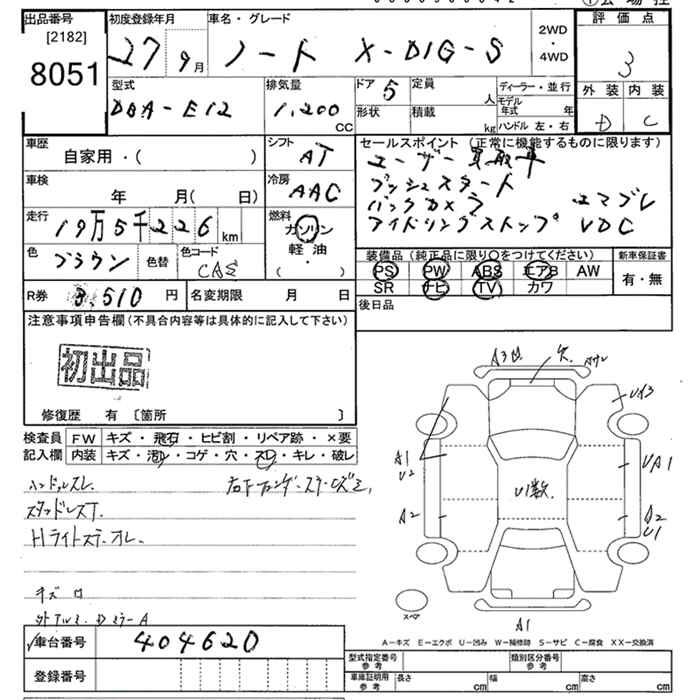 出品番号
[2182]
8051
初度登録年月
27 9月
車名・グレード
ノート X-DIG-S
2WD
・
4WD
評価点
3
外装 内装
D C
型式
DBA-E12
排気量
1,200
CC
ドア 5
形状
定員 人
積載 kg
ディーラー・並行
モデル年式 年
ハンドル 左・右
車歴
自家用・( )
シフト
AT
セールスポイント (正常に機能するものに限ります)
ユーザー買取車
プッシュスタート
バックカメラ エマブレ
アイドリングストップ VDC
車検
年 月( 日)
冷房
AAC
走行
19万5千226 km
燃料
ガソリン
軽・油
( ・ )
色
ブラウン
色替
色コード
CAS
装備品 (純正品に限り○をつけてください)
PS PW ABS エアB AW
SR ナビ TV カワ
新車保証書
有・無
R券 円
名変期限 月 日
後日品
注意事項申告欄(不具合内容等は具体的に記入して下さい)
初出品
修復歴 有 〔箇所 〕
検査員
記入欄
FW キズ・飛石・ヒビ割・リペア跡・×要
内装 キズ・汚レ・コゲ・穴・スレ・キレ・破レ
ハンドルスレ
Hライトステーオレ
キズ ロ
A3 凹
欠
UA3
A1
U2
UA1
U1数
A2
A2
U1
スペア
A1
A－キズ E－エクボ U－凹み W－補修跡 S－サビ C－腐食 XX－交換済
車台番号
404620
登録番号
型式指定番号
参考
類別区分番号
参考
車庫証明用
参考
長さ cm
幅 cm
高さ cm